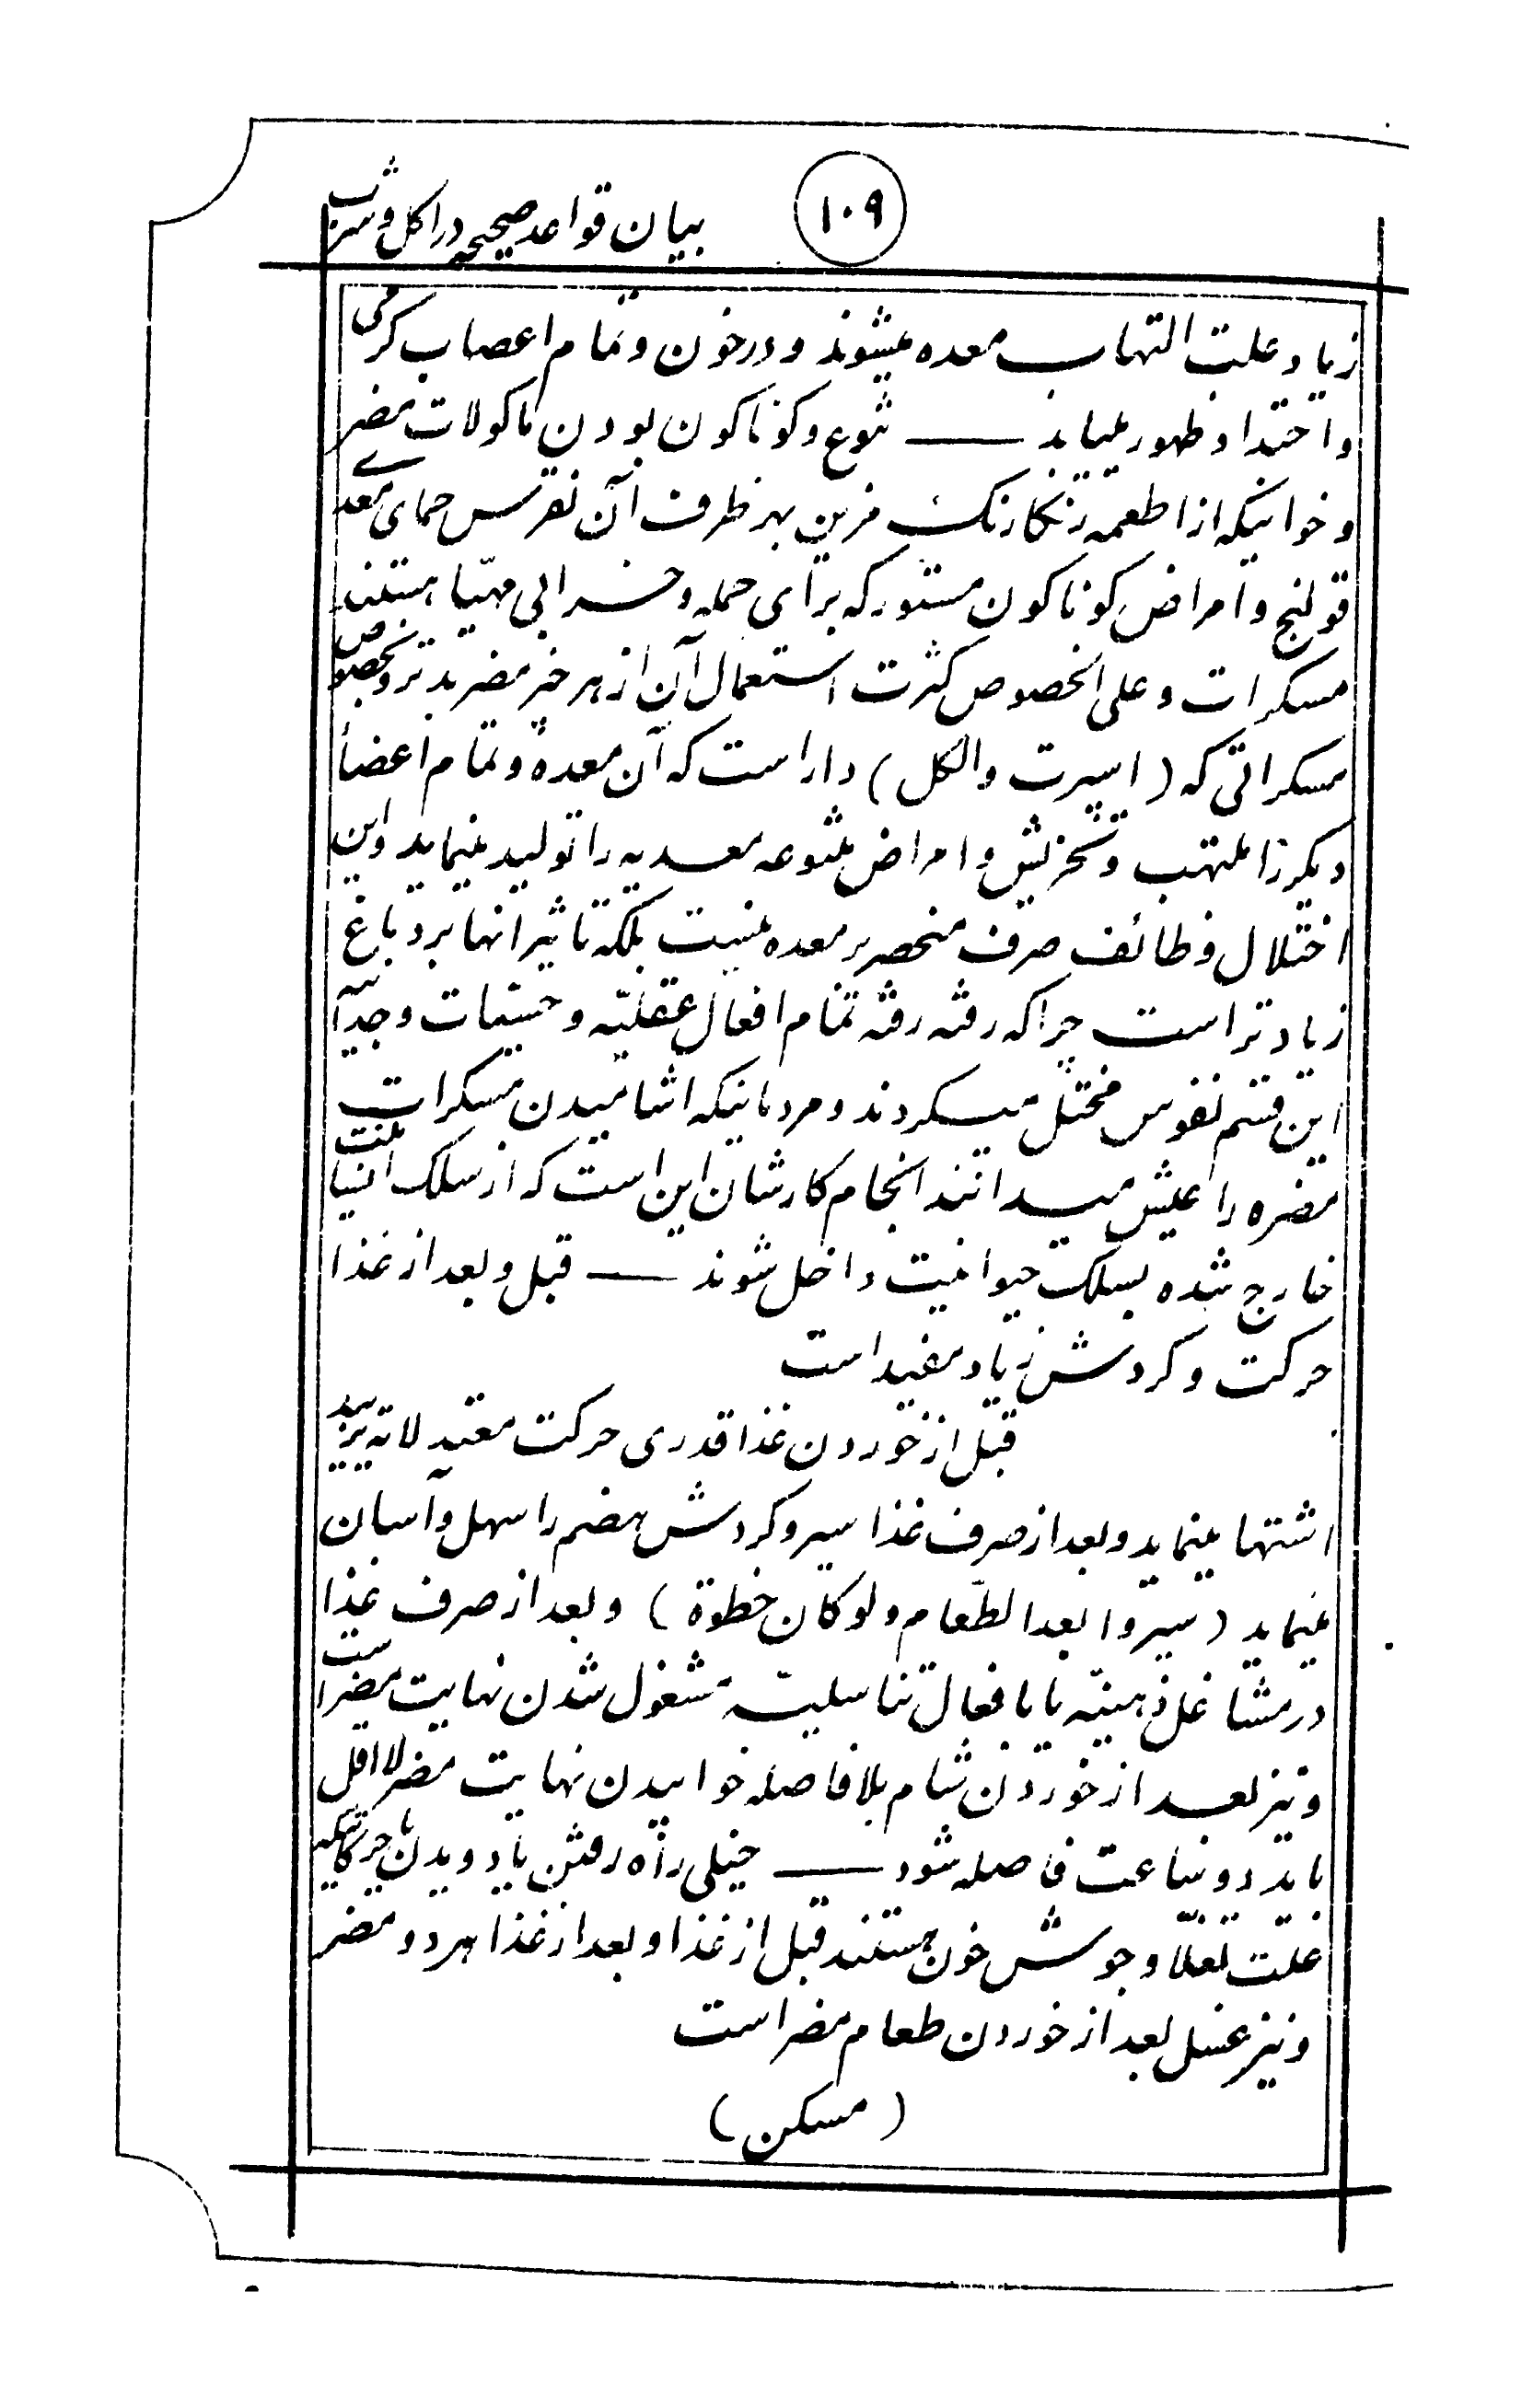 بیان قواعد صحیحه در اکل و شرب
۱۰۹
زیاد علت التهاب معده میشوند و در خون و تمام اعصاب گرمی
و احتداد ظهور میابد — تنوع و کوناکون بودن ماکولات مضر
و خوانیکه از اطعمه رنکارنک مزین بهر ظرف آن نقرس حمای معدی
قولنج و امراض کوناکون مستور که برای حمله و خرابی مهیّا هستند
مسکرات و علی الخصوص کثرت استعمال آن از هر چیز مضر بدتر و بخصوص
مسکراتی که (اسپرت والکل) دار است که آن معده و تمام اعضأ
دیکر را ملتهب و تخریش و امراض متنوعه معدیه را تولید مینماید و این
اختلال وظائف صرف منحصر بر معده نیست بلکه تاثیر انها بر دماغ
زیادتر است چرا که رفته رفته تمام افعال عقلیّه و حسیات وجدانیه
این قسم نفوس مختل میکردند و مردمانیکه اشامیدن مسکرات
مضره را عیش میدانند انجام کارشان این است که از سلک انسانیت
خارج شده بسلک حیوانیت داخل شوند — قبل و بعد از غذا
حرکت و کردش زیاد مفید است
قبل از خوردن غذا قدری حرکت معتدلانه تزیید
اشتها مینماید و بعد از صرف غذا سیر و کردش هضم را سهل و آسان
مینماید (سیروا بعد الطّعام ولو کان خطوة) و بعد از صرف غذا
در مشاغل ذهنیّه یا با فعال تناسلیه مشغول شدن نهایت مضر است
و نیز بعد از خوردن شام بلا فاصله خوابیدن نهایت مضر لا اقل
باید دو ساعت فاصله شود — خیلی راه رفتن یا دویدن یا حرکاتیکه
علت تعلّا و جوشش خون هستند قبل از غذا و بعد از غذا هر دو مضر
و نیز غسل بعد از خوردن طعام مضر است
(مسکن)